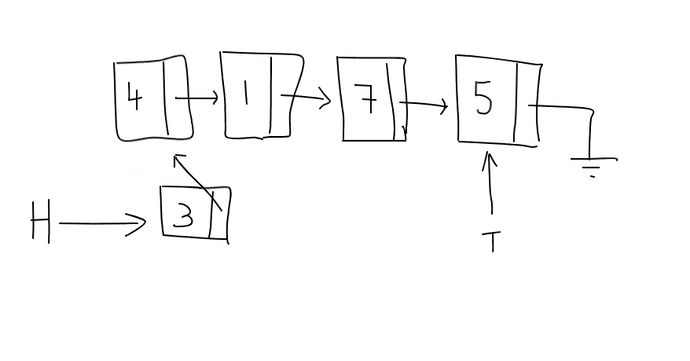 4 1 7 5
H 3
T